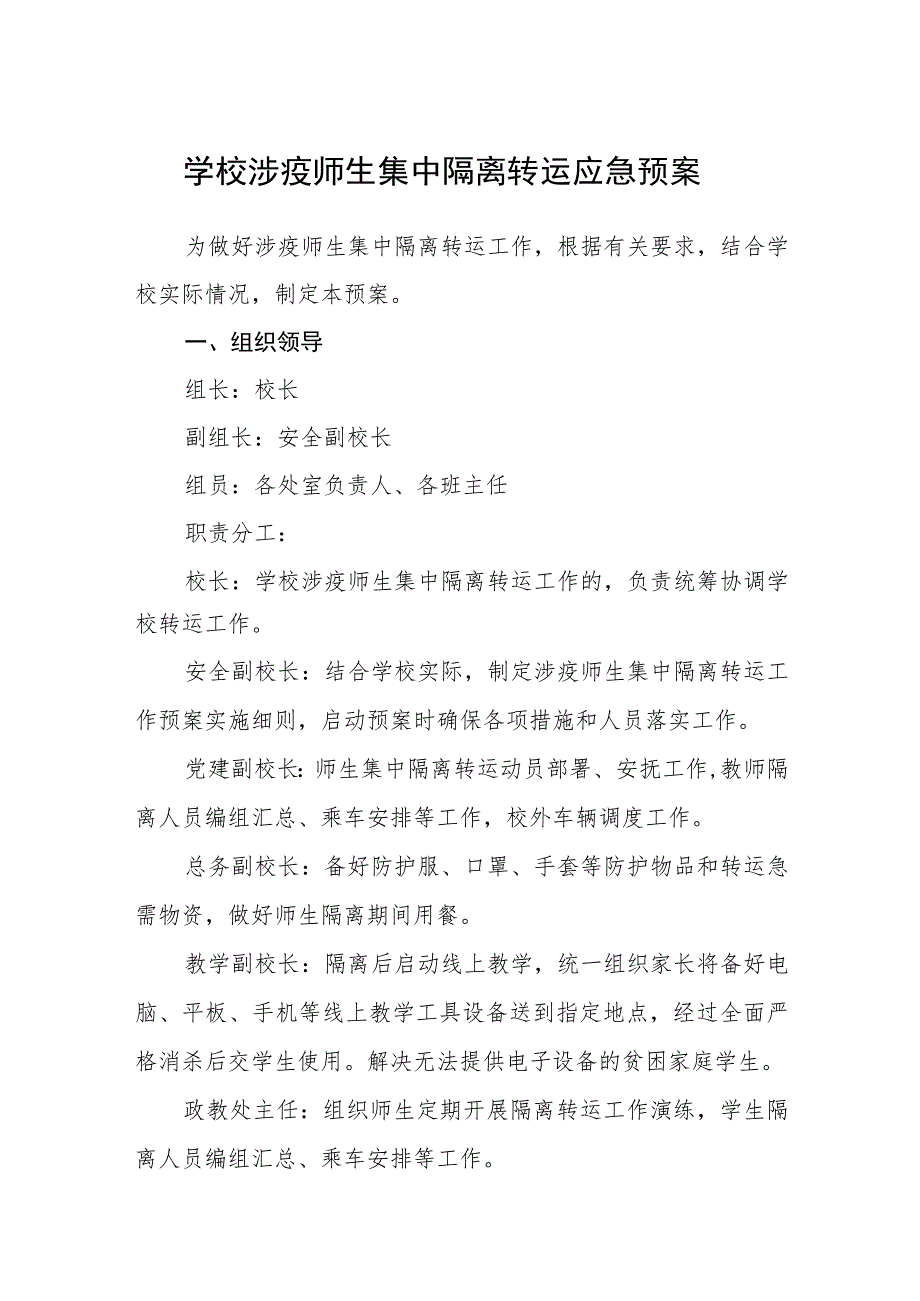 学校涉疫师生集中隔离转运应急预案
为做好涉疫师生集中隔离转运工作，根据有关要求，结合学
校实际情况，制定本预案。
一、组织领导
组长：校长
副组长：安全副校长
组员：各处室负责人、各班主任
职责分工：
校长：学校涉疫师生集中隔离转运工作的，负责统筹协调学
校转运工作。
安全副校长：结合学校实际，制定涉疫师生集中隔离转运工
作预案实施细则，启动预案时确保各项措施和人员落实工作。
党建副校长：师生集中隔离转运动员部署、安抚工作,教师隔
离人员编组汇总、乘车安排等工作，校外车辆调度工作。
总务副校长：备好防护服、口罩、手套等防护物品和转运急
需物资，做好师生隔离期间用餐。
教学副校长：隔离后启动线上教学，统一组织家长将备好电
脑、平板、手机等线上教学工具设备送到指定地点，经过全面严
格消杀后交学生使用。解决无法提供电子设备的贫困家庭学生。
政教处主任：组织师生定期开展隔离转运工作演练，学生隔
离人员编组汇总、乘车安排等工作。